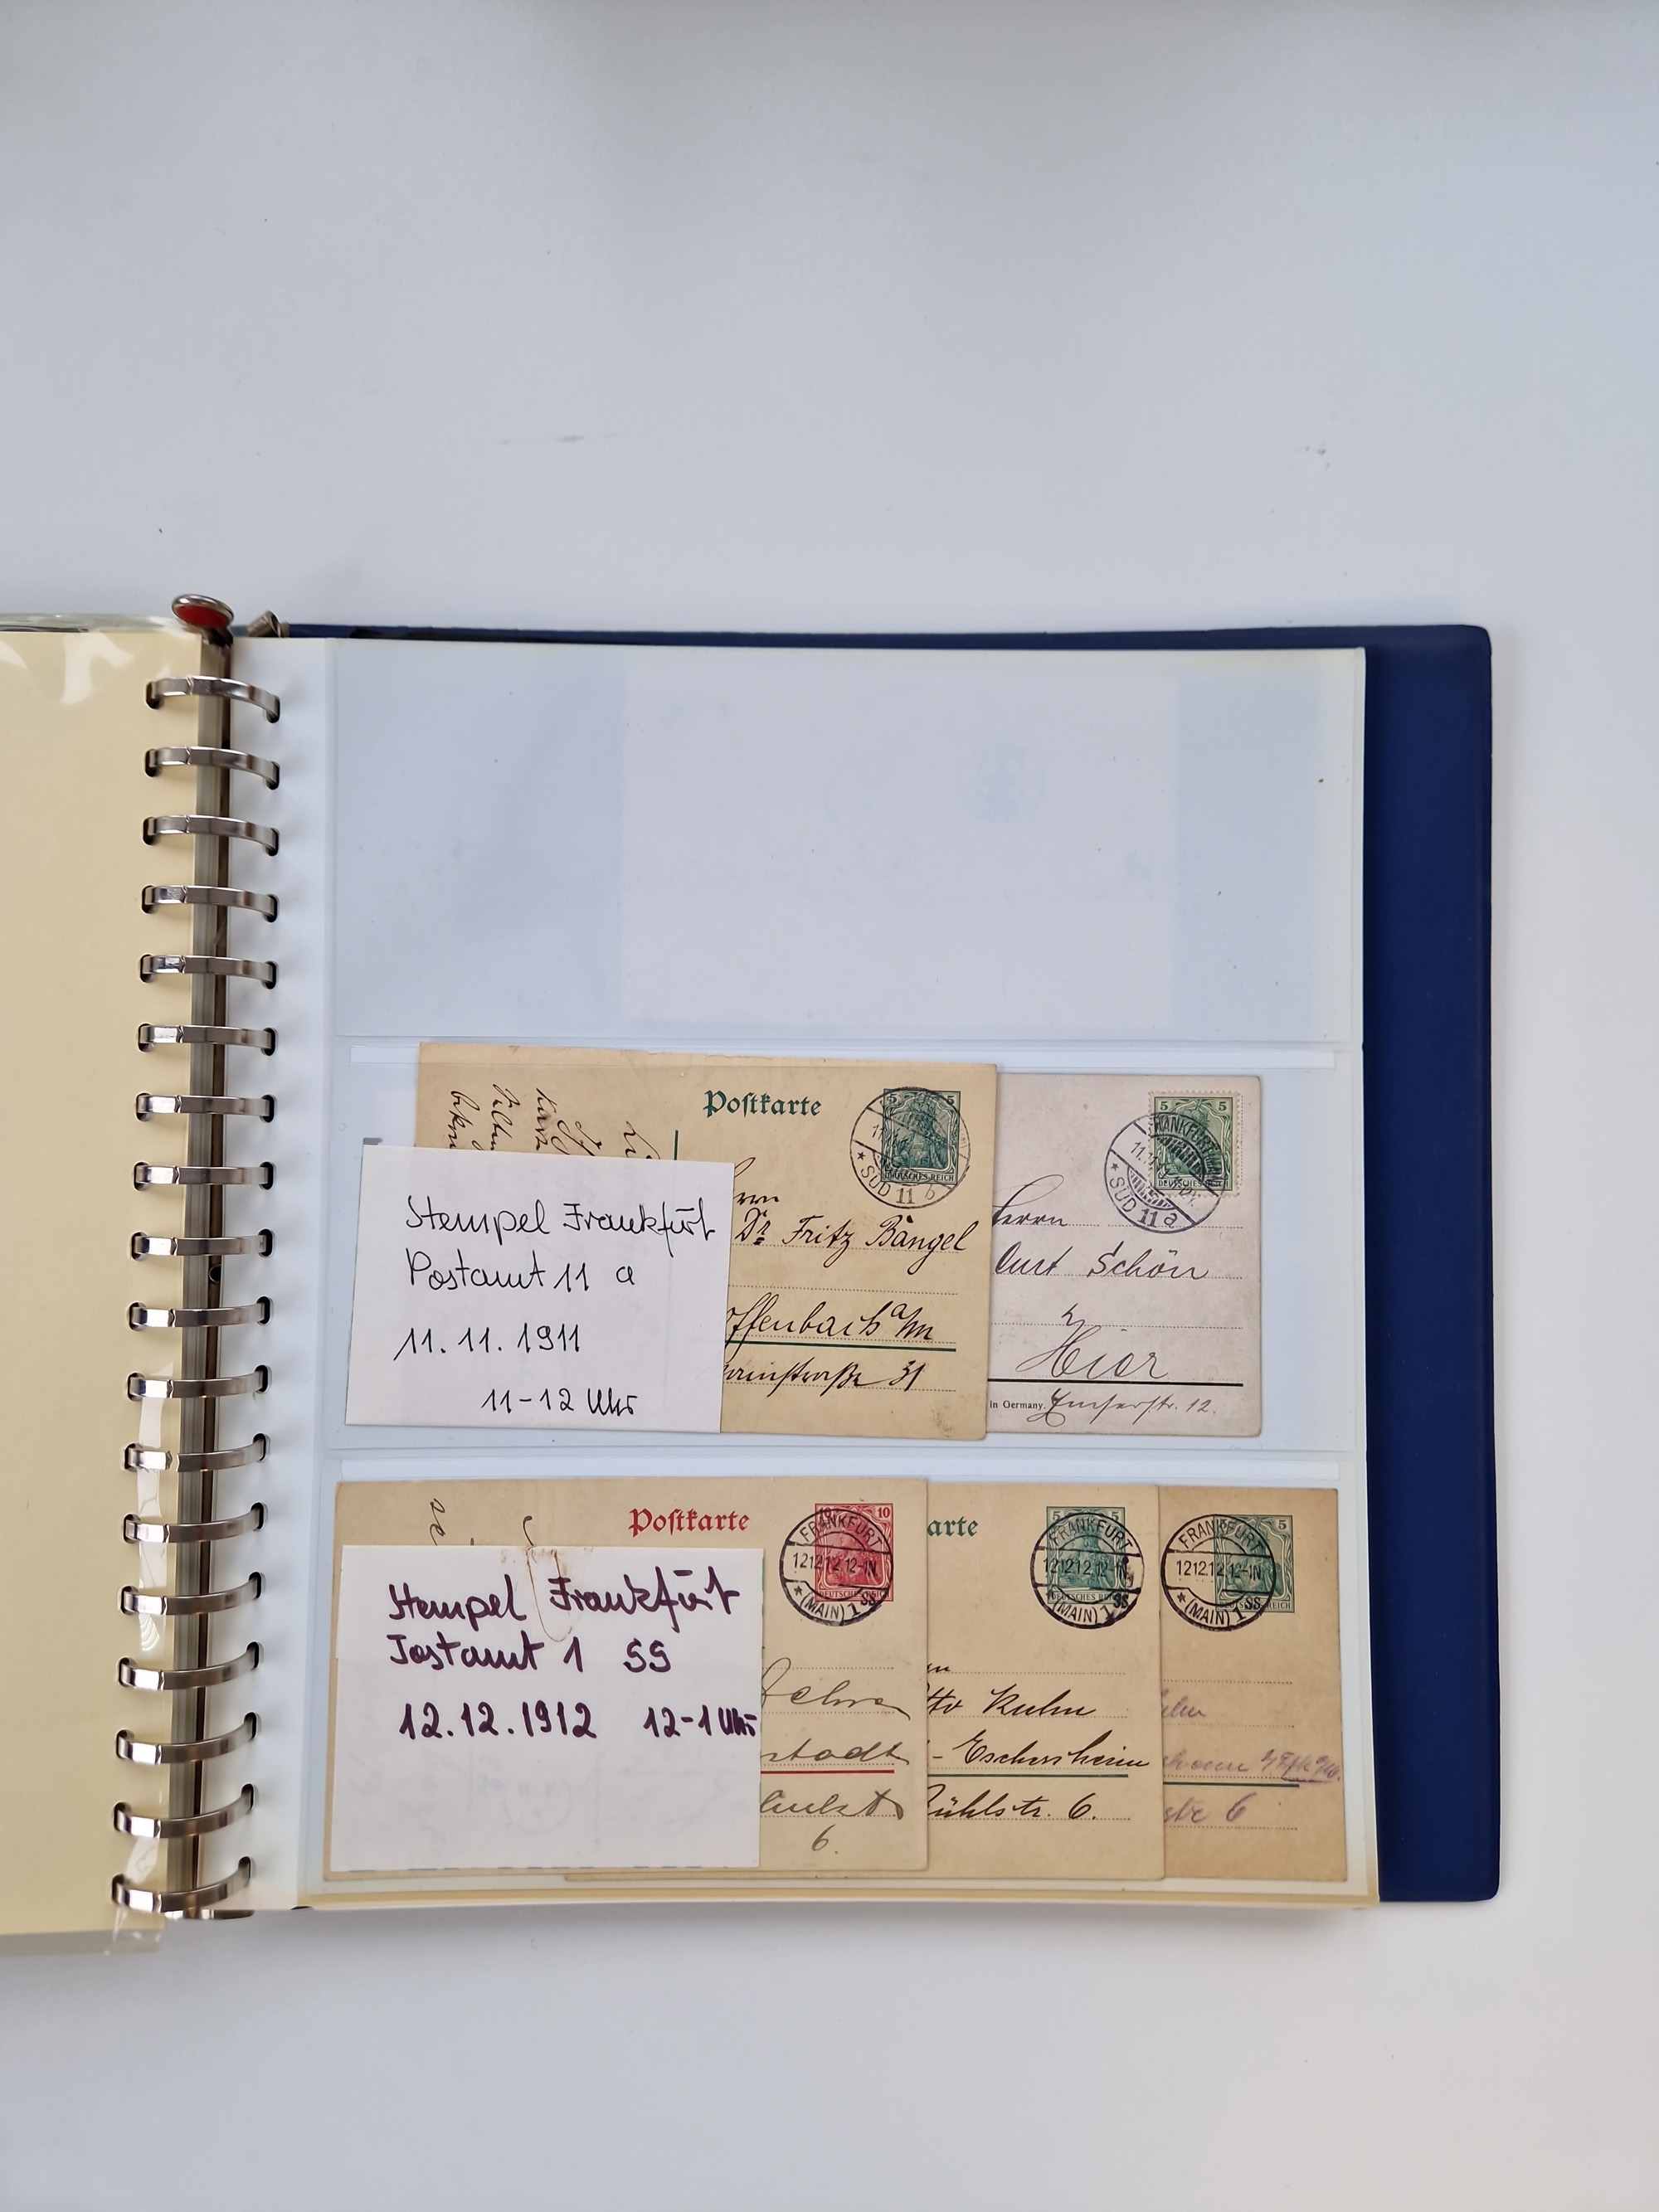 Postkarte
5 5
DEUTSCHES REICH
11.
* SÜD 11 b
Dr Fritz Bängel
Offenbach a/m
31
Stempel Frankfurt
Postamt 11 a
11.11.1911
11-12 Uhr
5 5
FRANKFURT (MAIN)
11.
* SÜD 11 a
DEUTSCHES REICH
Herrn
Curt Schön
Hier
in Germany.
12.
Postkarte
10
FRANKFURT
12.12.12.12-1N.
* (MAIN) 1 SS
DEUTSCHES REICH
6.
Stempel Frankfurt
Postamt 1 SS
12.12.1912 12-1 Uhr
arte
5 5
FRANKFURT
12.12.12.12-1N.
* (MAIN) 1 SS
DEUTSCHES REICH
tto Kuhn
- Eschersheim
ühlstr. 6.
5
FRANKFURT
12.12.12.12-1N.
* (MAIN) 1 SS
REICH
str 6